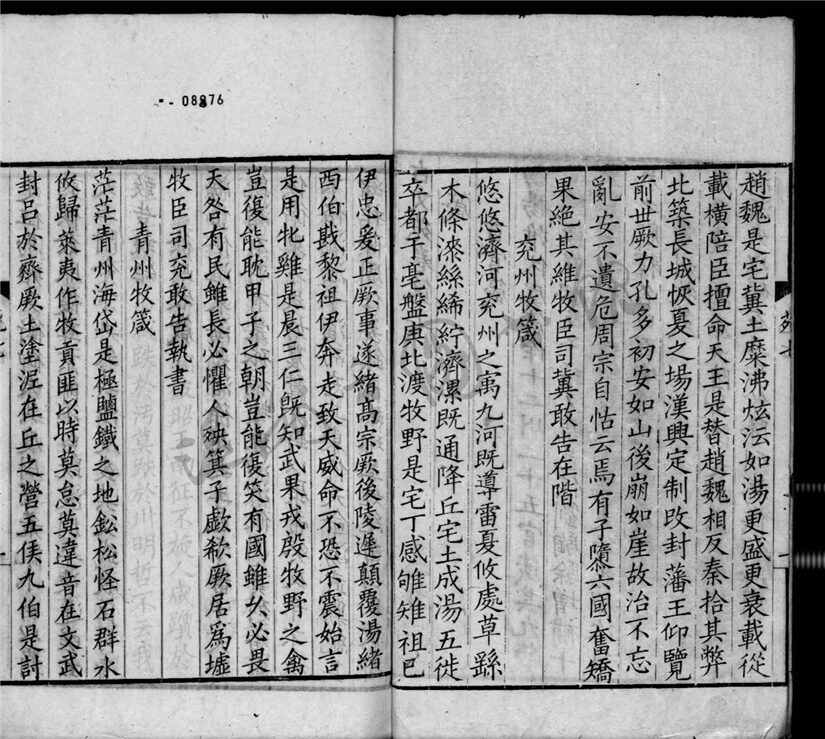 趙魏是宅冀土糜沸炫沄如湯更盛更衰載從
載橫陪臣擅命天王是替趙魏相反秦拾其弊
北築長城恢夏之場漢興定制改封藩王仰覽
前世厥力孔多初安如山後崩如崖故治不忘
亂安不遺危周宗自怙云焉有子隳六國奮矯
果絕其維牧臣司冀敢告在階
兖州牧箴
悠悠濟河兖州之寓九河既導雷夏攸處草繇
木條漆絲絺紵濟漯既通降丘宅土成湯五徙
卒都于亳盤庚北渡牧野是宅丁感雊雉祖己
伊忠爰正厥事遂緒高宗厥後陵遲顛覆湯緒
西伯戡黎祖伊奔走致天威命不恐不震始言
是用牝雞是晨三仁既知武果戎殷牧野之禽
豈復能耽甲子之朝豈能復笑有國雖久必畏
天咎有民雖長必懼人殃箕子歔欷厥居爲墟
牧臣司兖敢告執書
青州牧箴
茫茫青州海岱是極鹽鐵之地鈆松怪石群水
攸歸萊夷作牧貢匪以時莫怠莫違音在文武
封呂於齊厥土塗泥在丘之營五侯九伯是討
08976